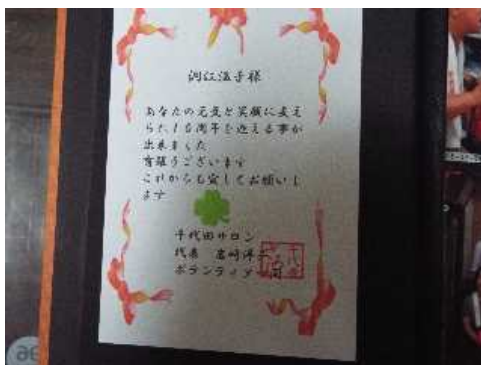 様
あなたの元気と笑顔に支え
られ１０周年を迎える事が
出来ました
有難うございます
これからも宜しくお願いし
ます
千代田サロン
代表 岩崎洋
ボランティア一同